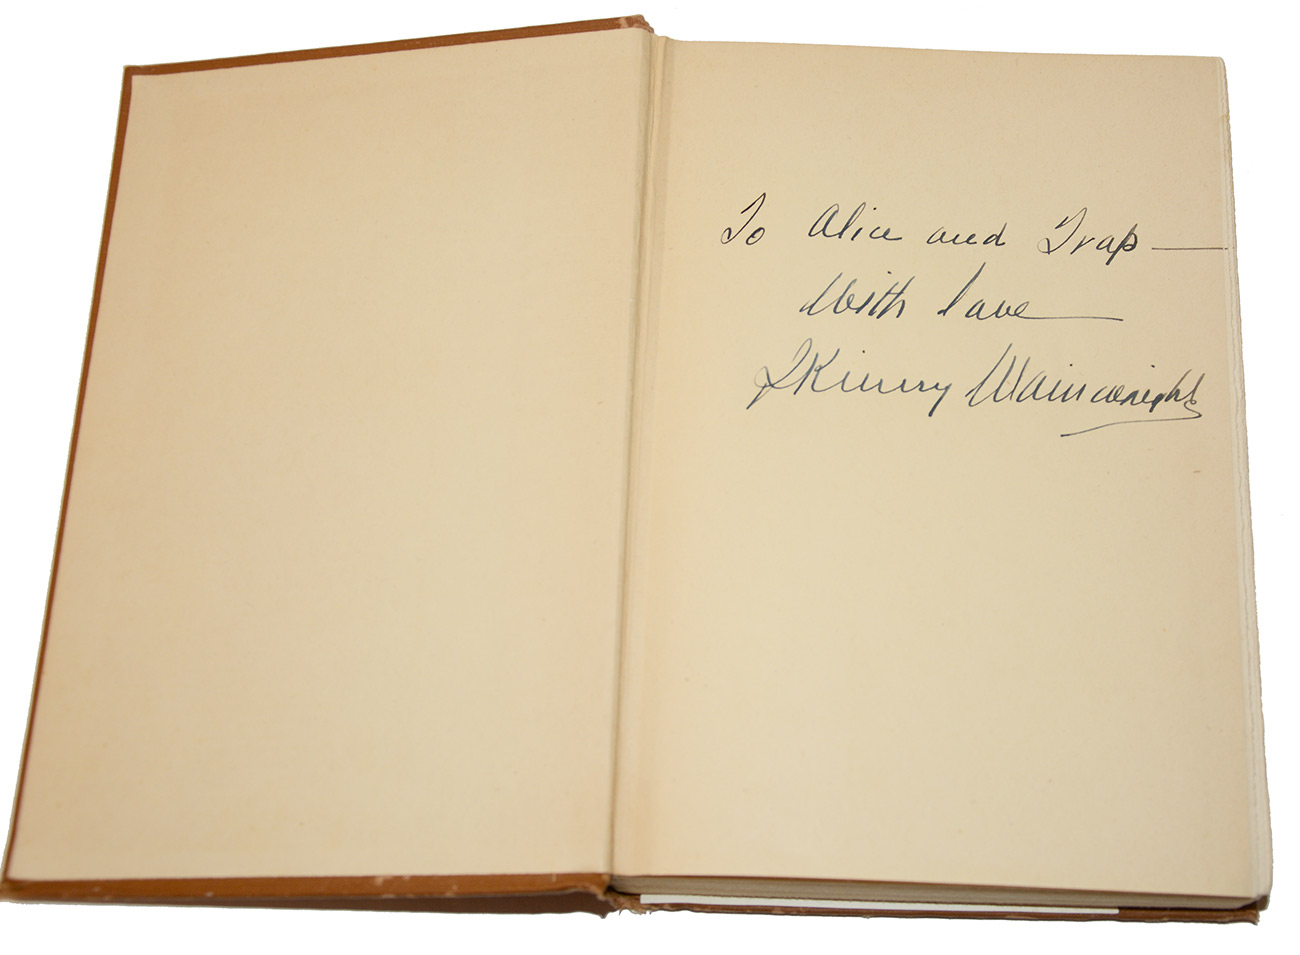 To Alice and Trap—
With love—
Skinny Wainwright